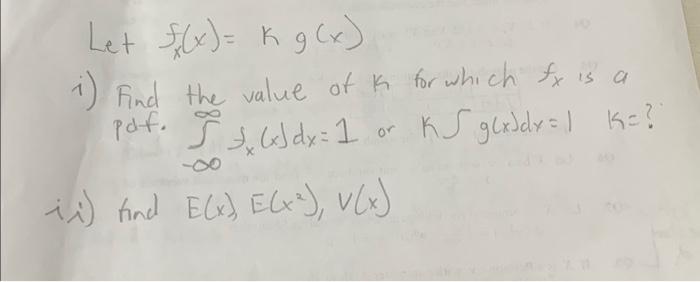 Let fₓ(x) = K g(x)
i) Find the value of K for which fₓ is a
pdf. ∞∫-∞ fₓ(x)dx = 1 or K∫g(x)dx = 1 K=?
ii) find E(x), E(x²), V(x)